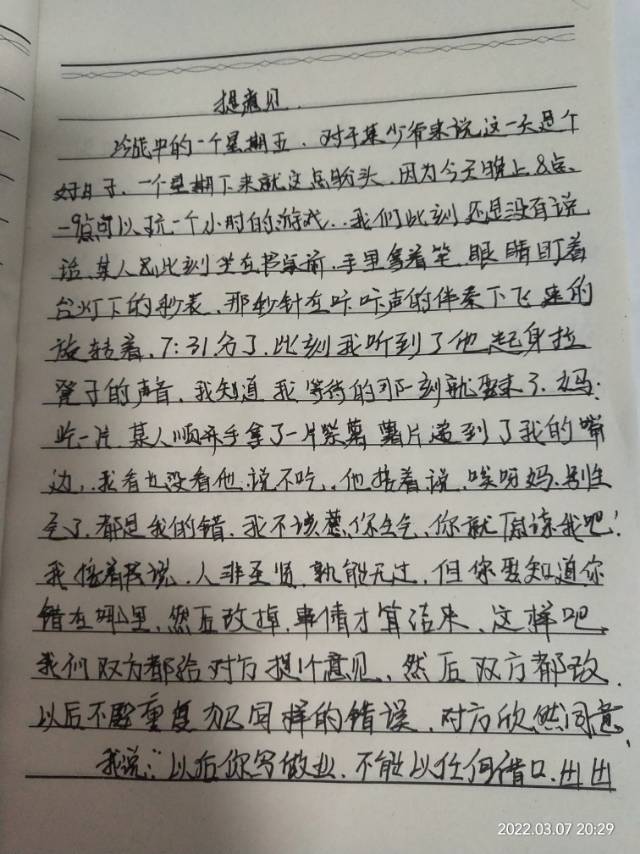 提意见.
冷战中的一个星期五. 对于某少爷来说这一天是个
好日子, 一个星期下来就这点盼头, 因为今天晚上8点
-9点可以玩一个小时的游戏..我们此刻还是没有说
话,某人则此刻坐在书桌前,手里拿着笔,眼睛盯着
台灯下的秒表,那秒针在咔咔声的伴奏下飞速的
旋转着,7:31分了,此刻我听到了他起身拉
凳子的声音,我知道我等待的那一刻就要来了.妈:
吃一片,某人顺手拿了一片紫薯薯片送到了我的嘴
边,我看也没看他,说不吃,他接着说,唉呀妈,别生
气了,都是我的错,我不该惹你生气,你就原谅我吧!
我接着说,人非圣贤,孰能无过,但你要知道你
错在哪里,然后改掉,事情才算结束,这样吧,
我们双方都给对方提个意见,然后双方都改,
以后不要重复犯同样的错误,对方欣然同意,
我说:“以后你写做业,不能以任何借口,出出
2022.03.07 20:29